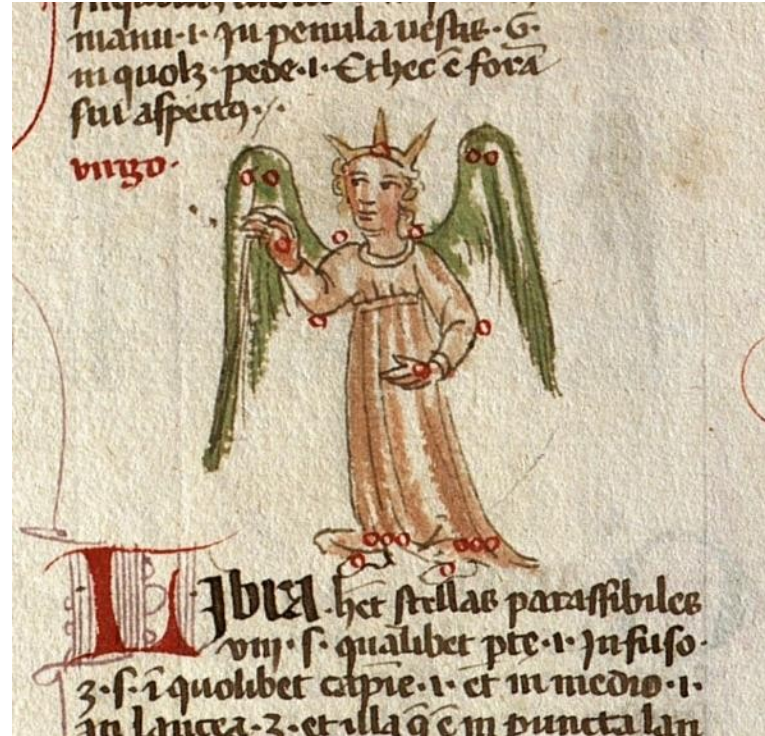 manu · i · In penula uestis · G ·
in quolz · pede · i · Et hec ē forā
sui aspectꝯ ·
virgo ·
LIbra · het stellas parassibiles
viij · s · qualibet pte · i · In fuso ·
3 · s · ī quolibet capīe · i · et in medio · i ·
an lancea · 3 · et illa q̄ ē in puncta lan